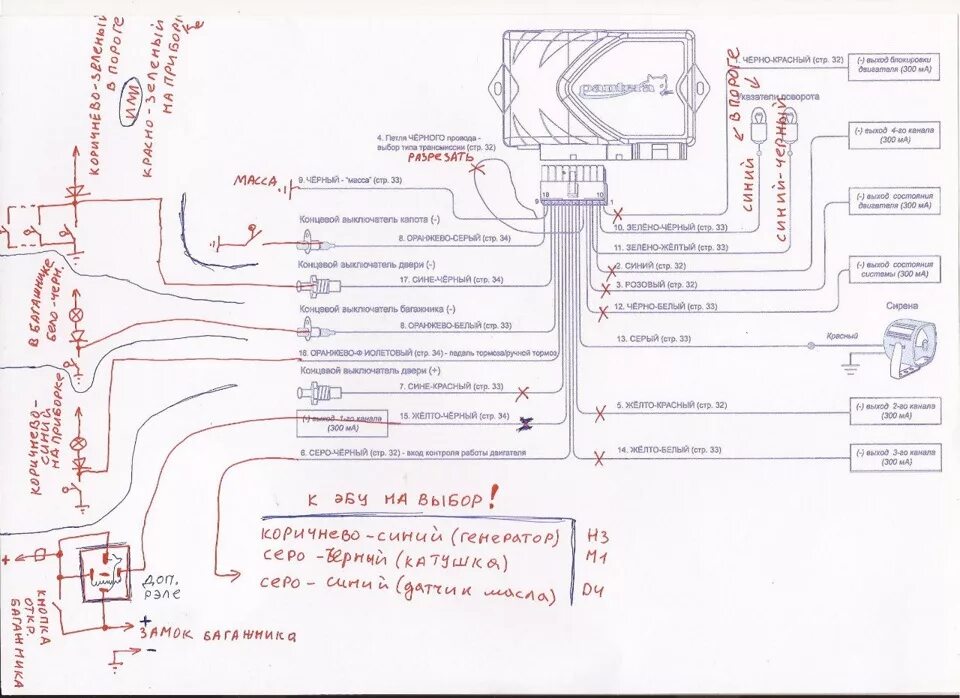 КОРИЧНЕВО-ЗЕЛЕНЫЙ
В ПОРОГЕ
ИЛИ
КРАСНО-ЗЕЛЕНЫЙ
НА ПРИБОРКЕ
pantera
4. Петля ЧЁРНОГО провода -
выбор типа трансмиссии (стр. 32)
РАЗРЕЗАТЬ
1. ЧЁРНО-КРАСНЫЙ (стр. 32)
(-) выход блокировки
двигателя (300 мА)
Указатели поворота
В ПОРОГЕ
СИНИЙ
СИНИЙ-ЧЕРНЫЙ
(-) выход 4-го канала
(300 мА)
МАССА
9. ЧЁРНЫЙ - "масса" (стр. 33)
9
18
10
1
(-) выход состояния
двигателя (300 мА)
Концевой выключатель капота (-)
8. ОРАНЖЕВО-СЕРЫЙ (стр. 34)
10. ЗЕЛЕНО-ЧЁРНЫЙ (стр. 33)
11. ЗЕЛЕНО-ЖЁЛТЫЙ (стр. 33)
Концевой выключатель двери (-)
17. СИНЕ-ЧЁРНЫЙ (стр. 34)
2. СИНИЙ (стр. 32)
3. РОЗОВЫЙ (стр. 32)
(-) выход состояния
системы (300 мА)
В БАГАЖНИКЕ
БЕЛО-ЧЕРН.
Концевой выключатель багажника (-)
8. ОРАНЖЕВО-БЕЛЫЙ (стр. 33)
12. ЧЁРНО-БЕЛЫЙ (стр. 33)
Сирена
Красный
13. СЕРЫЙ (стр. 33)
16. ОРАНЖЕВО-ФИОЛЕТОВЫЙ (стр. 34) - педаль тормоза/ручной тормоз
Концевой выключатель двери (+)
7. СИНЕ-КРАСНЫЙ (стр. 33)
КОРИЧНЕВО-
СИНИЙ
НА ПРИБОРКЕ
(-) выход 1-го канала
(300 мА)
15. ЖЁЛТО-ЧЁРНЫЙ (стр. 34)
5. ЖЁЛТО-КРАСНЫЙ (стр. 32)
(-) выход 2-го канала
(300 мА)
6. СЕРО-ЧЁРНЫЙ (стр. 32) - вход контроля работы двигателя
14. ЖЁЛТО-БЕЛЫЙ (стр. 33)
(-) выход 3-го канала
(300 мА)
К ЭБУ НА ВЫБОР!
КОРИЧНЕВО-СИНИЙ (генератор) H3
СЕРО-ЧЕРНЫЙ (КАТУШКА) M1
СЕРО-СИНИЙ (датчик масла) D4
+
ДОП.
РЭЛЕ
КНОПКА
ОТКР.
БАГАЖНИКА
+
ЗАМОК БАГАЖНИКА
-